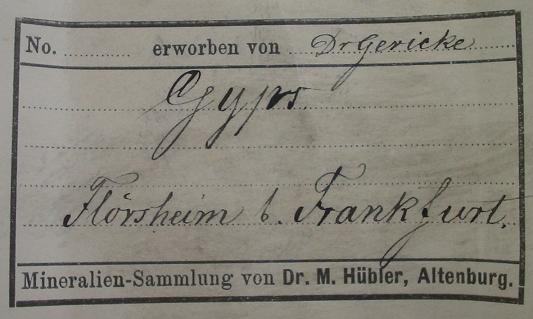 No. .......... erworben von Dr Gericke
Gyps
Flörsheim b. Frankfurt.
Mineralien-Sammlung von Dr. M. Hübler, Altenburg.